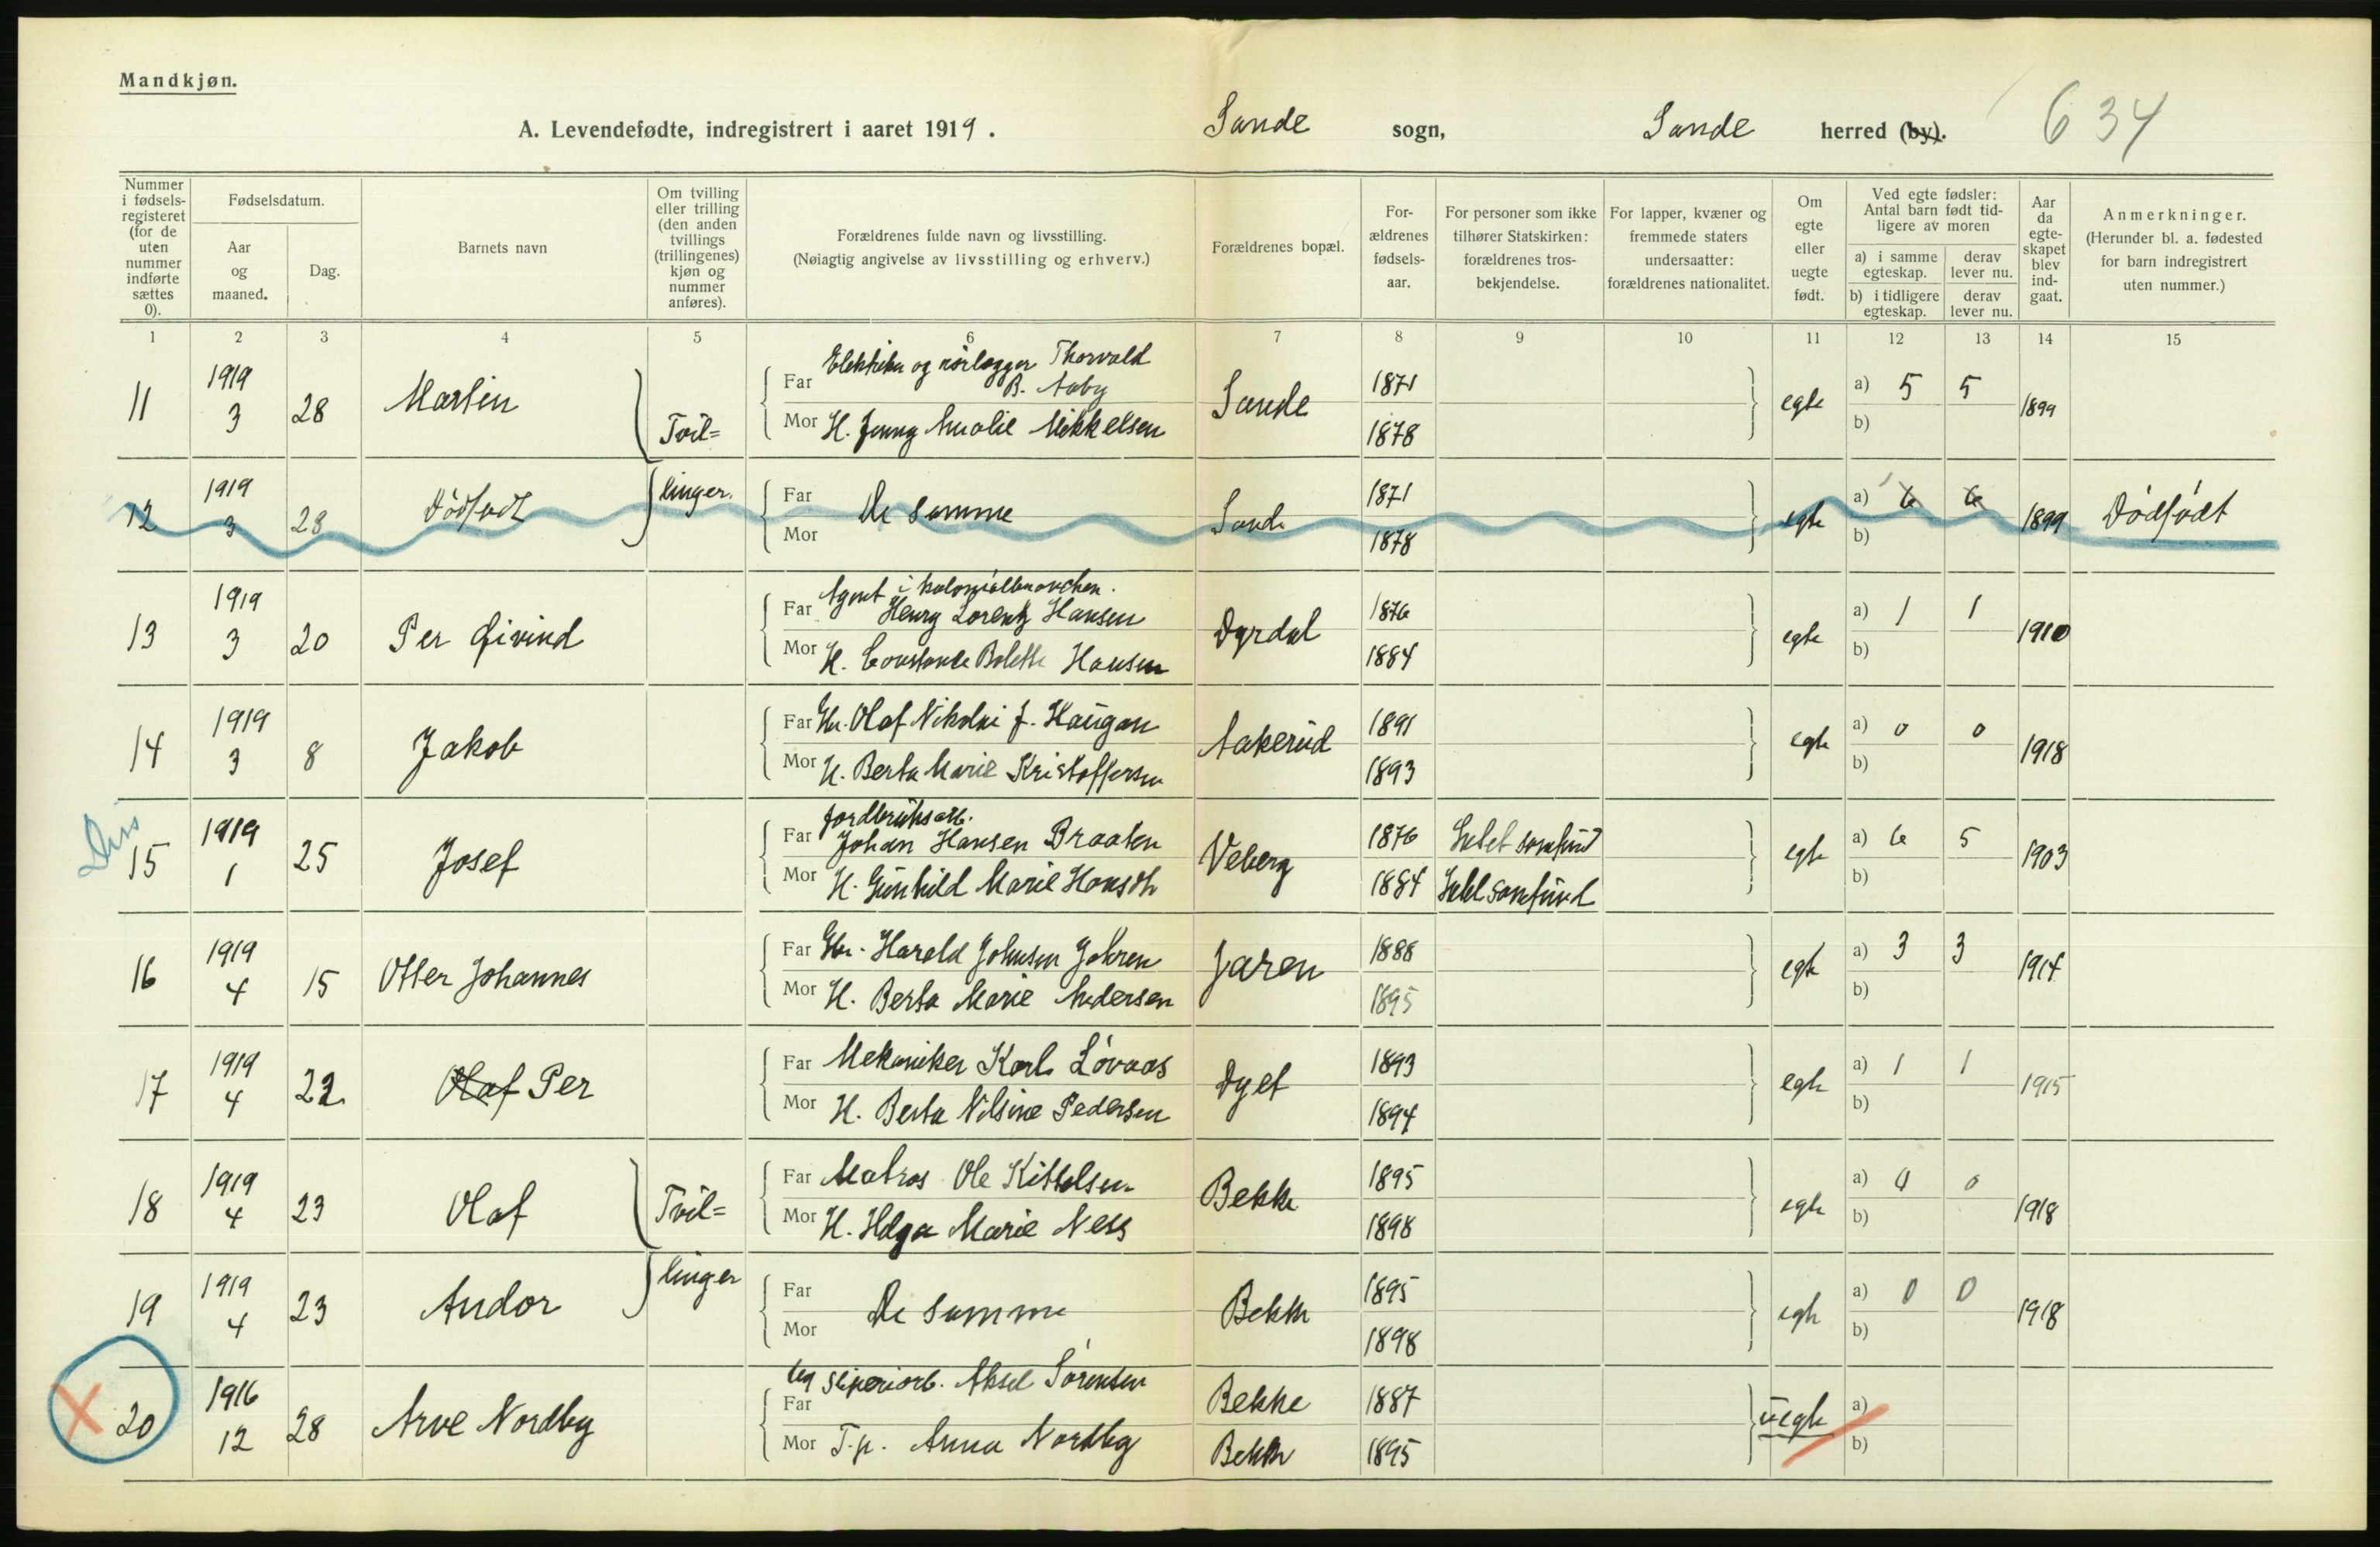 Mandkjøn.
A. Levendefødte, indregistrert i aaret 1919. Sande sogn, Sande herred (by). 634
Nummer i fødselsregisteret (for de uten nummer indførte sættes 0).
Fødselsdatum.
Aar og maaned.
Dag.
Barnets navn
Om tvilling eller trilling (den anden tvillings (trillingenes) kjøn og nummer anføres).
Forældrenes fulde navn og livsstilling.
(Nøiagtig angivelse av livsstilling og erhverv.)
Forældrenes bopæl.
Forældrenes fødselsaar.
For personer som ikke tilhører Statskirken: forældrenes trosbekjendelse.
For lapper, kvæner og fremmede staters undersaatter: forældrenes nationalitet.
Om egte eller uegte født.
Ved egte fødsler: Antal barn født tidligere av moren
a) i samme egteskap. derav lever nu.
b) i tidligere egteskap. derav lever nu.
Aar da egteskapet blev indgaat.
Anmerkninger.
(Herunder bl. a. fødested for barn indregistrert uten nummer.)
1 2 3 4 5 6 7 8 9 10 11 12 13 14 15
11 1919 3 28 Martin Tvil=
Far Elektriker og rørlægger Thorvald B. Aaby
Mor H. Jenny Amalie Mikkelsen
Sande 1871 1878 egte a) 5 5 b) 1899
12 1919 3 28 Dødfødt linger.
Far Mor De samme
Sande 1871 1878 egte a) 6 6 b) 1899 Dødfødt
13 1919 3 20 Per Eivind
Far Agent i kolonialbranchen. Henry Lorentz Hansen
Mor H. Constance Bolette Hansen
Dyrdal 1876 1884 egte a) 1 1 b) 1910
14 1919 3 8 Jakob
Far Gbr. Olaf Nikolai J. Haugan
Mor H. Berta Marie Kristoffersen
Aakerud 1891 1893 egte a) 0 0 b) 1918
Diss
15 1919 1 25 Josef
Far Jordbruksarb. Johan Hansen Braaten
Mor H. Gunhild Marie Hansdtr
Veberg 1876 1884 egte a) 6 5 b) 1903
16 1919 4 15 Otter Johannes
Far Gbr. Harald Johnsen Jahren
Mor H. Berta Marie Andersen
Jaren 1888 1895 egte a) 3 3 b) 1914
17 1919 4 22 Olaf Per
Far Mekaniker Karl Løvaas
Mor H. Berta Nilsine Pedersen
Dyet 1893 1894 egte a) 1 1 b) 1915
18 1919 4 23 Olaf Tvil=
Far Matros Ole Kittelsen
Mor H. Helga Marie Ness
Bekke 1895 1898 egte a) 0 0 b) 1918
19 1919 4 23 Andor linger
Far Mor De samme
Bekke 1895 1898 egte a) 0 0 b) 1918
20 1916 12 28 Arve Nordby
Far Ug sliperiarb. Aksel Sørensen
Mor T.p. Anna Nordby
Bekke 1887 Bekke 1895 uegte a) b)